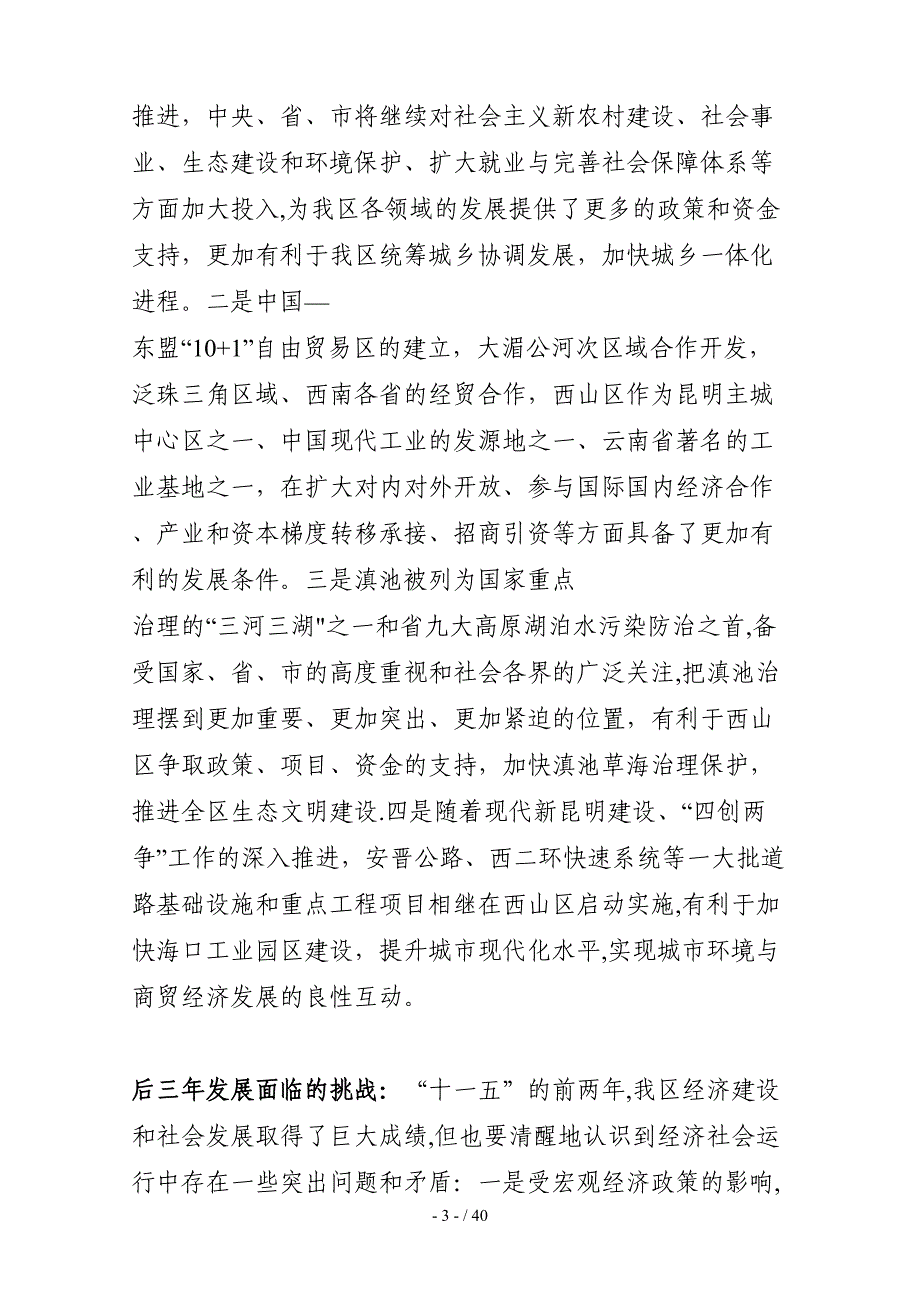 推进，中央、省、市将继续对社会主义新农村建设、社会事
业、生态建设和环境保护、扩大就业与完善社会保障体系等
方面加大投入,为我区各领域的发展提供了更多的政策和资金
支持，更加有利于我区统筹城乡协调发展，加快城乡一体化
进程。二是中国—
东盟“10+1”自由贸易区的建立，大湄公河次区域合作开发，
泛珠三角区域、西南各省的经贸合作，西山区作为昆明主城
中心区之一、中国现代工业的发源地之一、云南省著名的工
业基地之一，在扩大对内对外开放、参与国际国内经济合作
、产业和资本梯度转移承接、招商引资等方面具备了更加有
利的发展条件。三是滇池被列为国家重点
治理的“三河三湖"之一和省九大高原湖泊水污染防治之首,备
受国家、省、市的高度重视和社会各界的广泛关注,把滇池治
理摆到更加重要、更加突出、更加紧迫的位置，有利于西山
区争取政策、项目、资金的支持，加快滇池草海治理保护，
推进全区生态文明建设.四是随着现代新昆明建设、“四创两
争”工作的深入推进，安晋公路、西二环快速系统等一大批道
路基础设施和重点工程项目相继在西山区启动实施,有利于加
快海口工业园区建设，提升城市现代化水平,实现城市环境与
商贸经济发展的良性互动。
后三年发展面临的挑战：“十一五”的前两年,我区经济建设
和社会发展取得了巨大成绩,但也要清醒地认识到经济社会运
行中存在一些突出问题和矛盾：一是受宏观经济政策的影响,
- 3 - / 40